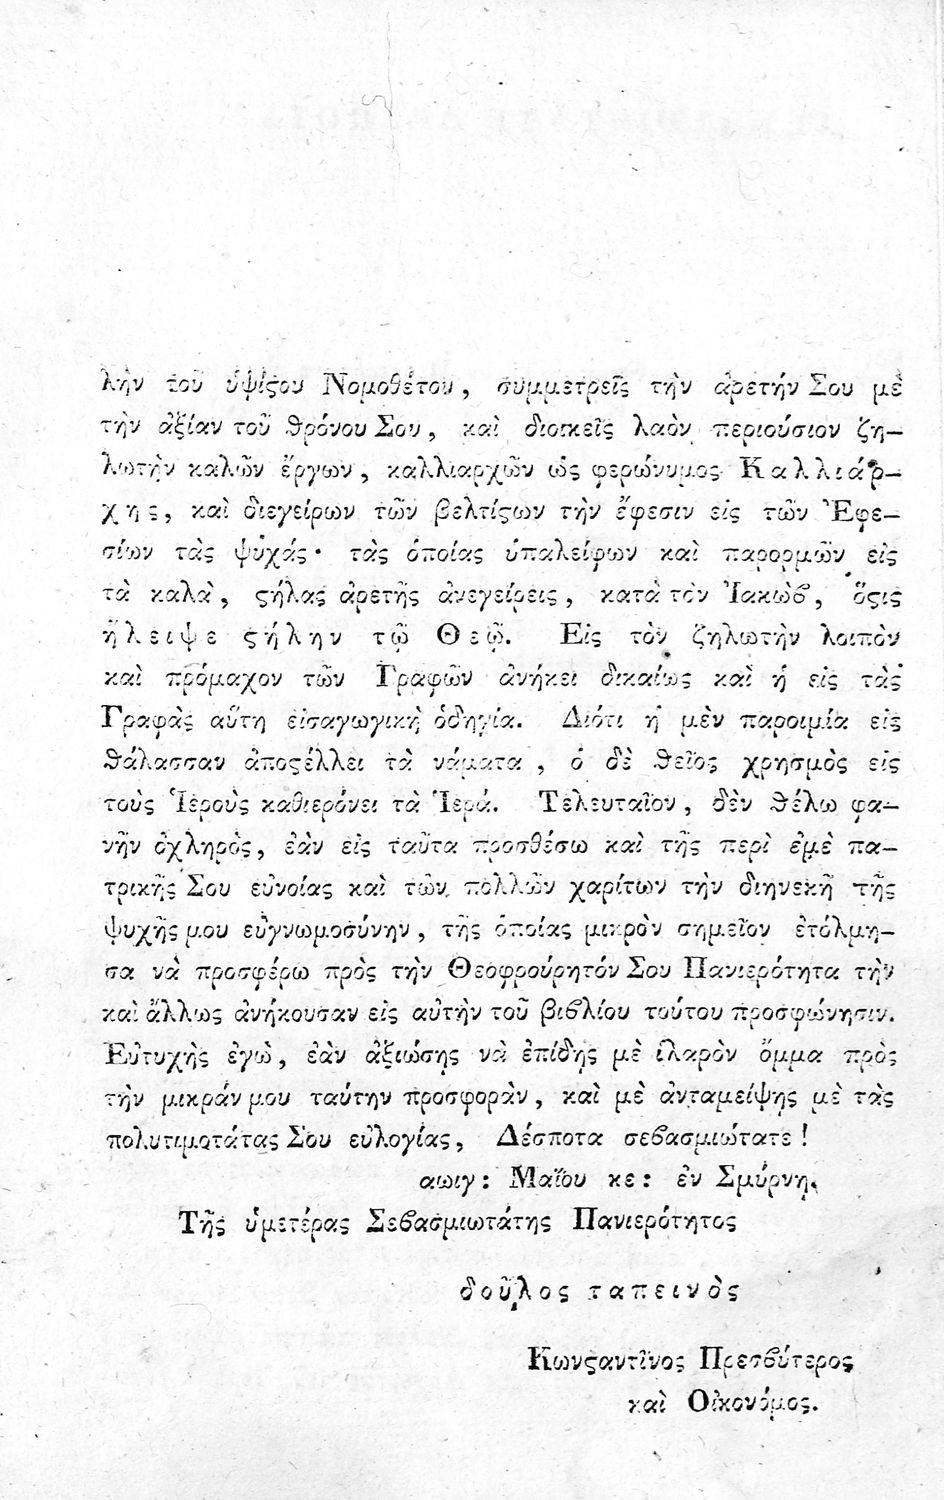 λὴν τοῦ ὑψίϛου Νομοθέτου, συμμετρεῖς τὴν ἀρετήν Σου μὲ
τὴν ἀξίαν τοῦ ϑρόνου Σου, καὶ διοικεῖς λαὸν περιούσιον ζη-
λωτὴν καλῶν ἔργων, καλλιαρχῶν ὡς φερώνυμος Καλλιάρ-
χης, καὶ διεγείρων τῶν βελτίϛων τὴν ἔφεσιν εἰς τῶν Ἐφε-
σίων τὰς ψυχάς· τὰς ὁποίας ὑπαλείφων καὶ παρορμῶν εἰς
τὰ καλὰ, ϛήλας ἀρετῆς ἀνεγείρεις, κατὰ τὸν Ἰακὼϐ, ὅϛις
ἤλειψε ϛήλην τῷ Θεῷ. Εἰς τὸν ζηλωτὴν λοιπὸν
καὶ πρόμαχον τῶν Γραφῶν ἀνήκει δικαίως καὶ ἡ εἰς τὰς
Γραφὰς αὕτη εἰσαγωγικὴ ὁδηγία. Διότι ἡ μὲν παροιμία εἰς
ϑάλασσαν ἀποϛέλλει τὰ νάματα, ὁ δὲ ϑεῖος χρησμὸς εἰς
τοὺς Ἱεροὺς καθιερόνει τὰ Ἱερά. Τελευταῖον, δὲν ϑέλω φα-
νῆν ὀχληρὸς, ἐὰν εἰς ταῦτα προσθέσω καὶ τῆς περὶ ἐμὲ πα-
τρικῆς Σου εὐνοίας καὶ τῶν πολλῶν χαρίτων τὴν διηνεκῆ τῆς
ψυχῆς μου εὐγνωμοσύνην, τῆς ὁποίας μικρὸν σημεῖον ἐτόλμη-
σα νὰ προσφέρω πρὸς τὴν Θεοφρούρητόν Σου Πανιερότητα τὴν
καὶ ἄλλως ἀνήκουσαν εἰς αὐτὴν τοῦ βιϐλίου τούτου προσφώνησιν.
Εὐτυχὴς ἐγὼ, ἐὰν ἀξιώσῃς νὰ ἐπίδῃς μὲ ἱλαρὸν ὄμμα πρὸς
τὴν μικράν μου ταύτην προσφορὰν, καὶ μὲ ἀνταμείψῃς μὲ τὰς
πολυτιμοτάτας Σου εὐλογίας, Δέσποτα σεϐασμιώτατε!
αωιγ: Μαΐου κε: ἐν Σμύρνῃ.
Τῆς ὑμετέρας Σεϐασμιωτάτης Πανιερότητος
δοῦλος ταπεινὸς
Κωνϛαντῖνος Πρεσϐύτερος
καὶ Οἰκονόμος.